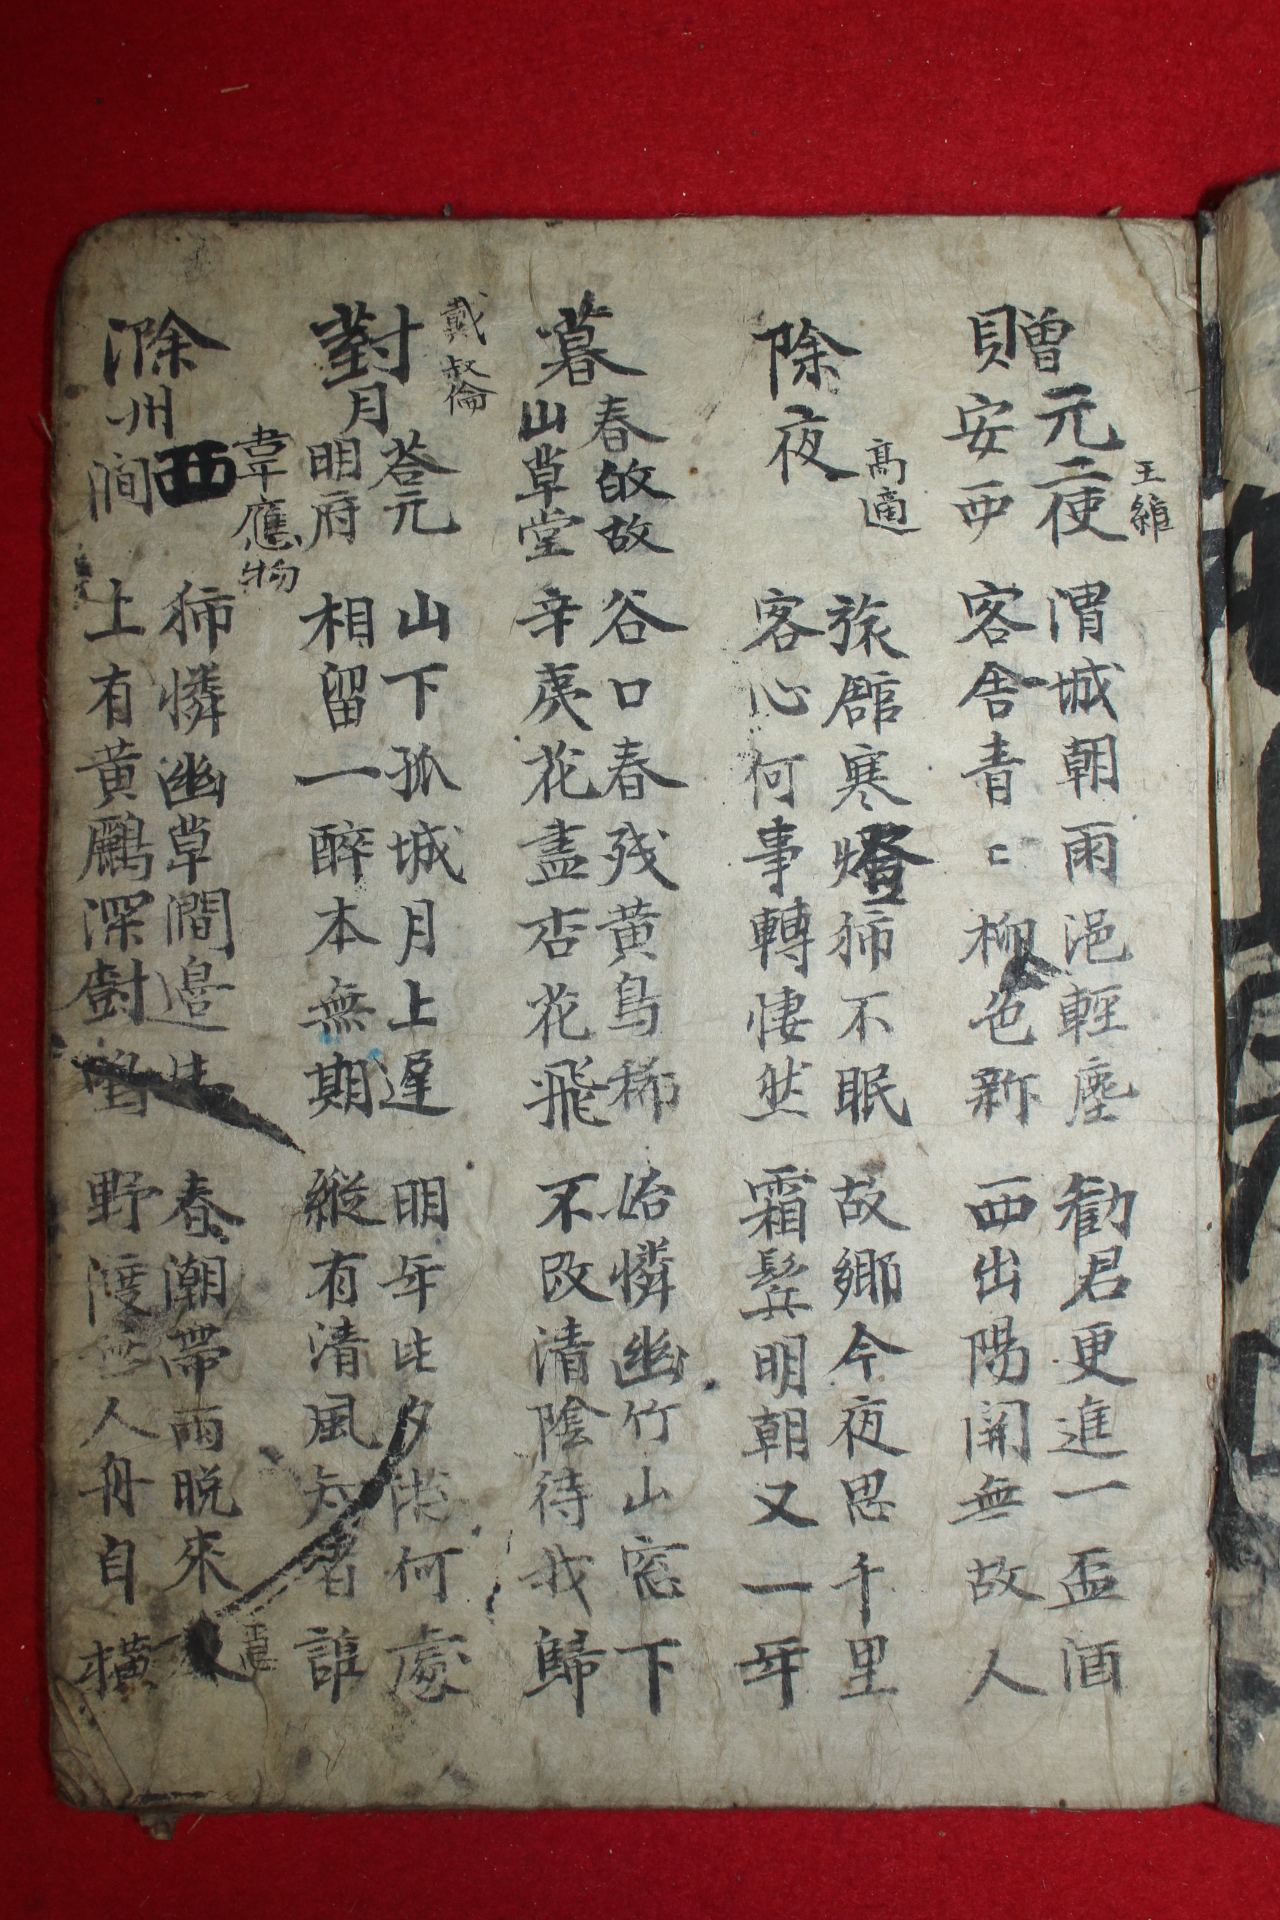 王維
贈元二使渭城朝雨浥輕塵勸君更進一盃酒
安西客舍青〻柳色新西出陽關無故人
高適
除夜旅館寒燈獨不眠故鄕今夜思千里
客心何事轉悽然霜鬢明朝又一年
暮春敀故谷口春殘黃鳥稀始憐幽竹山窓下
山草堂辛夷花盡杏花飛不改清陰待我歸
戴叔倫
對月荅元山下孤城月上遲明年此夕遊何處
明府相留一醉本無期縱有清風知者誰
韋應物急
滁州西獨憐幽草澗邊生春潮帶雨晩來
澗上有黃鸝深樹鳴野渡無人舟自橫